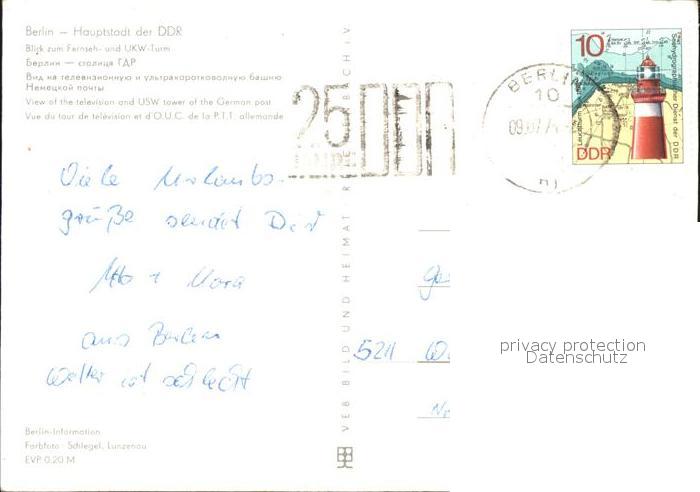 Berlin – Hauptstadt der DDR
Blick zum Fernseh- und UKW-Turm
Берлин — столица ГДР
Вид на телевизионную и ультракоротковолную башню
Немецкой почты
View of the television and USW tower of the German post
Vue du tour de télévision et d'O.U.C. de la P.T.T. allemande
25
DDR
BERLIN
10
09.07.74
10
Seehydrographischer Dienst der DDR
Leuchtturm
DDR
Viele Urlaubs-
grüße sendet Dir
aus Berlin
Wetter ist schlecht
5211
privacy protection
Datenschutz
VEB BILD UND HEIMAT
Berlin-Information
Farbfoto: Schlegel, Lunzenau
EVP 0,20 M